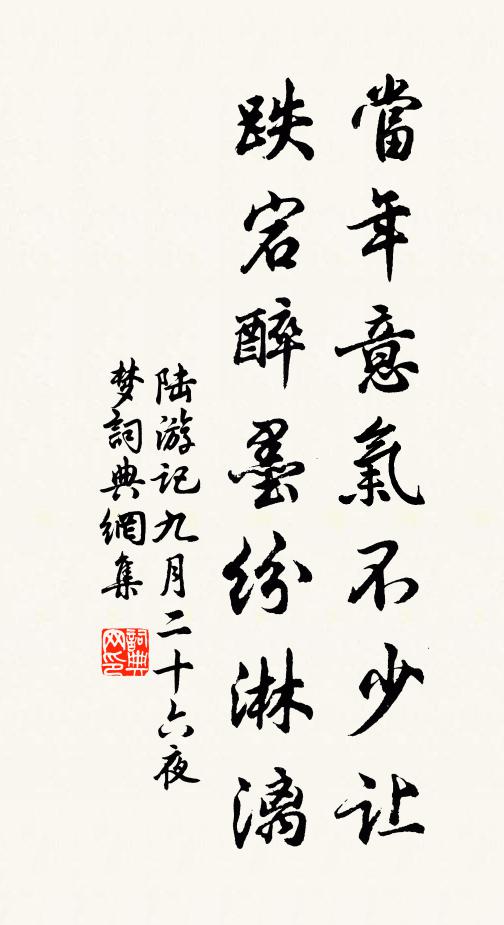 當年意氣不少让
跌宕醉墨紛淋漓
陆游记九月二十六夜
梦詞典網集
詞典网印